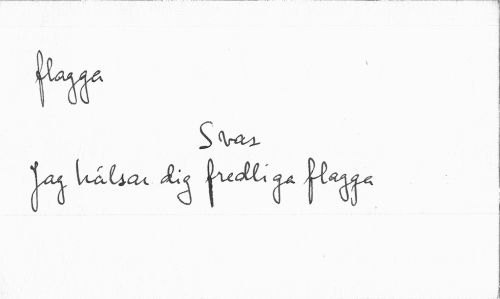 flagga
Svas
Jag hälsar dig fredliga flagga